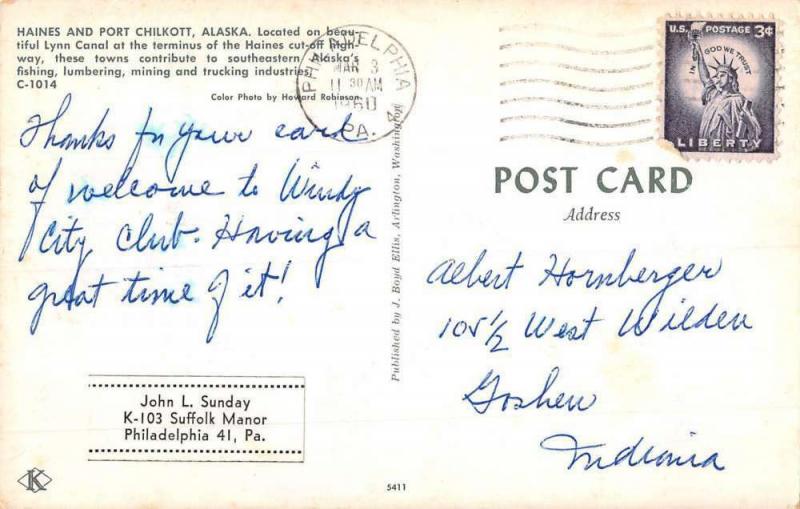 HAINES AND PORT CHILKOTT, ALASKA. Located on beau-
tiful Lynn Canal at the terminus of the Haines cut-off high-
way, these towns contribute to southeastern Alaska's
fishing, lumbering, mining and trucking industries.
C-1014
Color Photo by Howard Robinson
PHILADELPHIA
MAR 3
11 30 AM
1960
PA.
U.S. POSTAGE 3¢
IN GOD WE TRUST
LIBERTY
Thanks for your card
of welcome to Windy
City Club. Having a
great time of it!
John L. Sunday
K-103 Suffolk Manor
Philadelphia 41, Pa.
K
Published by J. Boyd Ellis, Arlington, Washington
5411
POST CARD
Address
Albert Hornberger
105½ West Wilden
Goshen
Indiana